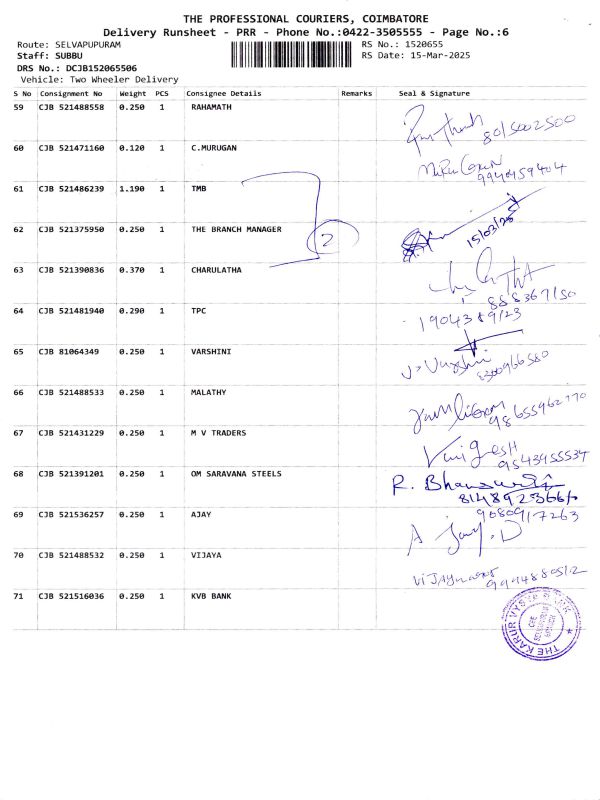 THE PROFESSIONAL COURIERS, COIMBATORE
Delivery Runsheet - PRR - Phone No.:0422-3505555 - Page No.:6
Route: SELVAPUPURAM RS No.: 1520655
Staff: SUBBU RS Date: 15-Mar-2025
DRS No.: DCJB152065506
Vehicle: Two Wheeler Delivery
S No Consignment No Weight PCS Consignee Details Remarks Seal & Signature
59 CJB 521488558 0.250 1 RAHAMATH
8015002500
60 CJB 521471160 0.120 1 C.MURUGAN
9940459404
61 CJB 521486239 1.190 1 TMB
62 CJB 521375950 0.250 1 THE BRANCH MANAGER
2
15/03/25
63 CJB 521390836 0.370 1 CHARULATHA
64 CJB 521481940 0.290 1 TPC
65 CJB 81064349 0.250 1 VARSHINI
8300966580
66 CJB 521488533 0.250 1 MALATHY
9865596 2770
67 CJB 521431229 0.250 1 M V TRADERS
9543955534
68 CJB 521391201 0.250 1 OM SARAVANA STEELS
69 CJB 521536257 0.250 1 AJAY
9080917263
70 CJB 521488532 0.250 1 VIJAYA
71 CJB 521516036 0.250 1 KVB BANK
THE KARUR VYSYA BANK